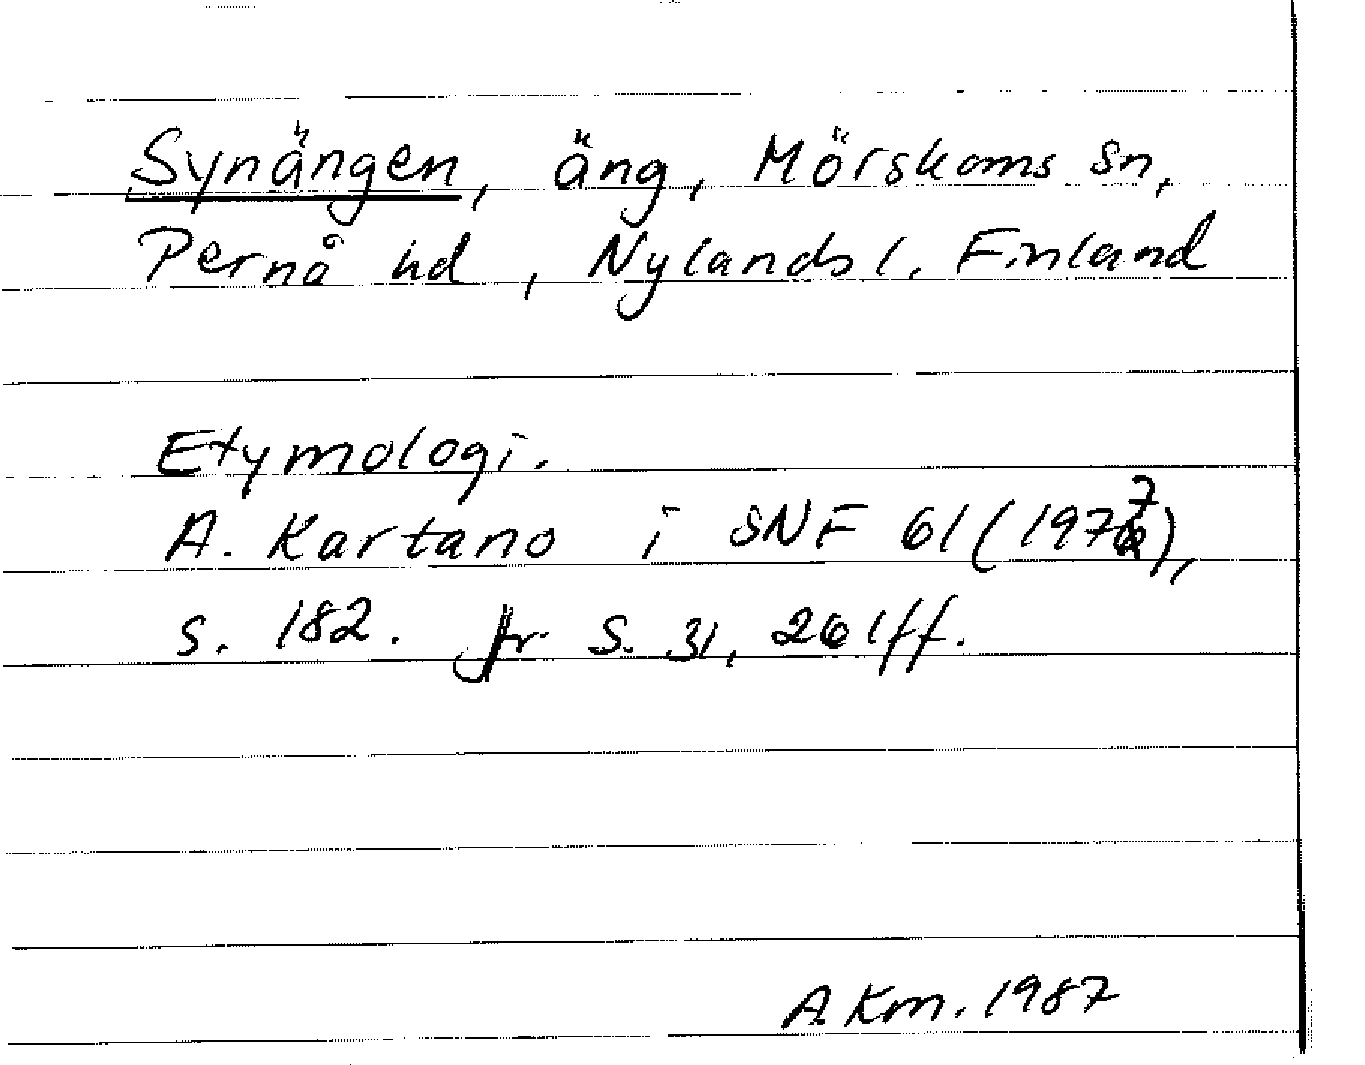 Synängen, äng, Mörskoms sn,
Pernå hd, Nylands l. Finland
Etymologi.
A. Kartano i SNF 61 (1977),
s. 182. Jfr s. 31, 261ff.
A.Km. 1987